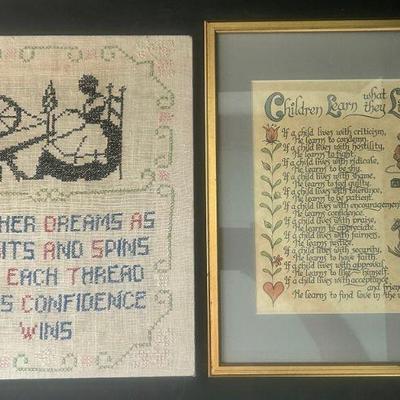 HER DREAMS AS
ITS AND SPINS
EACH THREAD
S CONFIDENCE
WINS
Children Learn what they Li
If a child lives with criticism,
He learns to condemn.
If a child lives with hostility,
He learns to fight.
If a child lives with ridicule,
He learns to be shy.
If a child lives with shame,
He learns to feel guilty.
If a child lives with tolerance,
He learns to be patient.
If a child lives with encouragement
He learns confidence.
If a child lives with praise,
He learns to appreciate.
If a child lives with fairness,
He learns justice.
If a child lives with security,
He learns to have faith.
If a child lives with approval,
He learns to like himself.
If a child lives with acceptance
and
He learns to find love in the